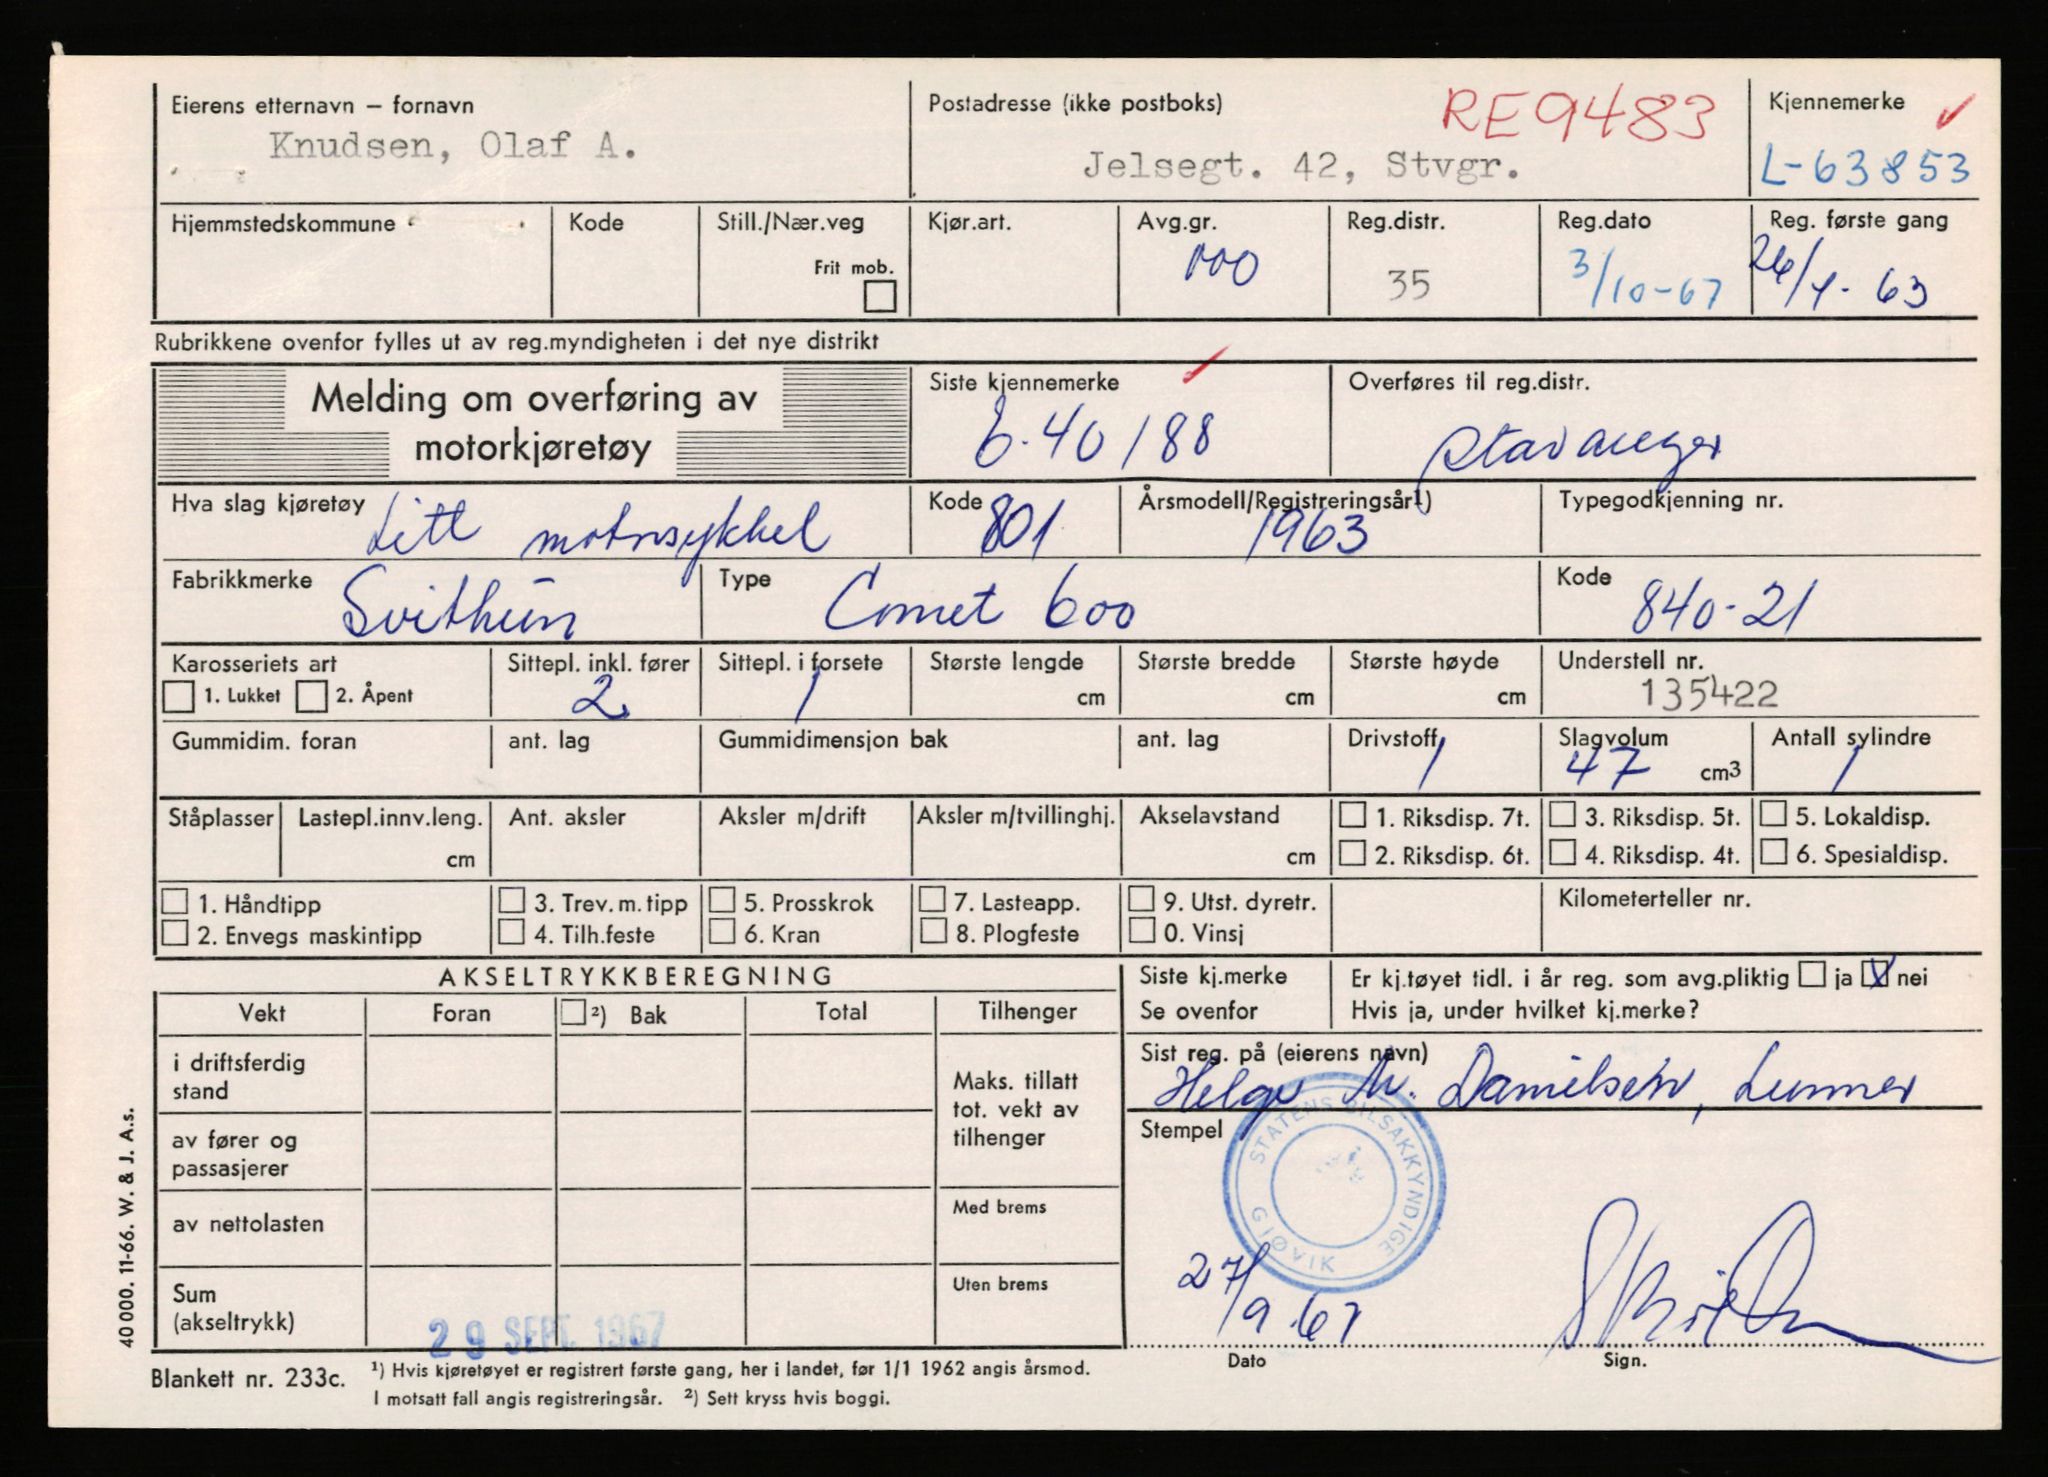 Eierens etternavn – fornavn
Knudsen, Olaf A.
Postadresse (ikke postboks)
RE9483
Jelsegt. 42, Stvgr.
Kjennemerke
L-63853
Hjemmstedskommune
Kode
Still./Nær.veg
Frit mob.
Kjør.art.
Avg.gr.
000
Reg.distr.
35
Reg.dato
3/10-67
Reg. første gang
26/4-63
Rubrikkene ovenfor fylles ut av reg.myndigheten i det nye distrikt
Melding om overføring av
motorkjøretøy
Siste kjennemerke
E-40188
Overføres til reg.distr.
Stavanger
Hva slag kjøretøy
Lett motorsykkel
Kode
801
Årsmodell/Registreringsår1)
1963
Typegodkjenning nr.
Fabrikkmerke
Svithun
Type
Comet 600
Kode
840-21
Karosseriets art
1. Lukket 2. Åpent
Sittepl. inkl. fører
2
Sittepl. i forsete
1
Største lengde
cm
Største bredde
cm
Største høyde
cm
Understell nr.
135422
Gummidim. foran
ant. lag
Gummidimensjon bak
ant. lag
Drivstoff
1
Slagvolum
47 cm3
Antall sylindre
1
Ståplasser
Lastepl.innv.leng.
cm
Ant. aksler
Aksler m/drift
Aksler m/tvillinghj.
Akselavstand
cm
1. Riksdisp. 7t.
2. Riksdisp. 6t.
3. Riksdisp. 5t.
4. Riksdisp. 4t.
5. Lokaldisp.
6. Spesialdisp.
1. Håndtipp
2. Envegs maskintipp
3. Trev. m. tipp
4. Tilh.feste
5. Prosskrok
6. Kran
7. Lasteapp.
8. Plogfeste
9. Utst. dyretr.
0. Vinsj
Kilometerteller nr.
AKSELTRYKKBEREGNING
Vekt
Foran
2) Bak
Total
Tilhenger
i driftsferdig
stand
av fører og
passasjerer
av nettolasten
Sum
(akseltrykk)
Maks. tillatt
tot. vekt av
tilhenger
Med brems
Uten brems
29 SEPT. 1967
Siste kj.merke
Se ovenfor
Er kj.tøyet tidl. i år reg. som avg.pliktig ja X nei
Hvis ja, under hvilket kj.merke?
Sist reg. på (eierens navn)
Helge M. Danielsen, Lunner
Stempel
STATENS BILSAKKYNDIGE
GJØVIK
27/9.67
Dato
Sign.
40 000. 11-66. W. & J. A.s.
Blankett nr. 233c.
1) Hvis kjøretøyet er registrert første gang, her i landet, før 1/1 1962 angis årsmod.
I motsatt fall angis registreringsår. 2) Sett kryss hvis boggi.